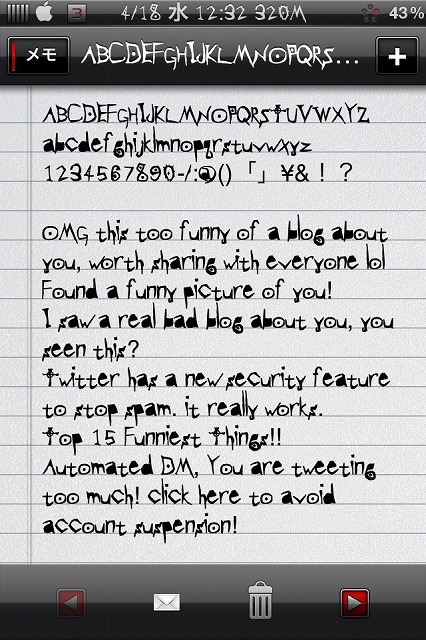 4/18 水 12:32 320M 43%
メモ ABCDEFGHIJKLMNOPQRS... +
ABCDEFGHIJKLMNOPQRSTUVWXYZ
abcdefghijklmnopqrstuvwxyz
1234567890-/:@()「」¥&！？
OMG this too funny of a blog about
you, worth sharing with everyone lol
Found a funny picture of you!
I saw a real bad blog about you, you
seen this?
Twitter has a new security feature
to stop spam. it really works.
Top 15 Funniest Things!!
Automated DM, You are tweeting
too much! click here to avoid
account suspension!